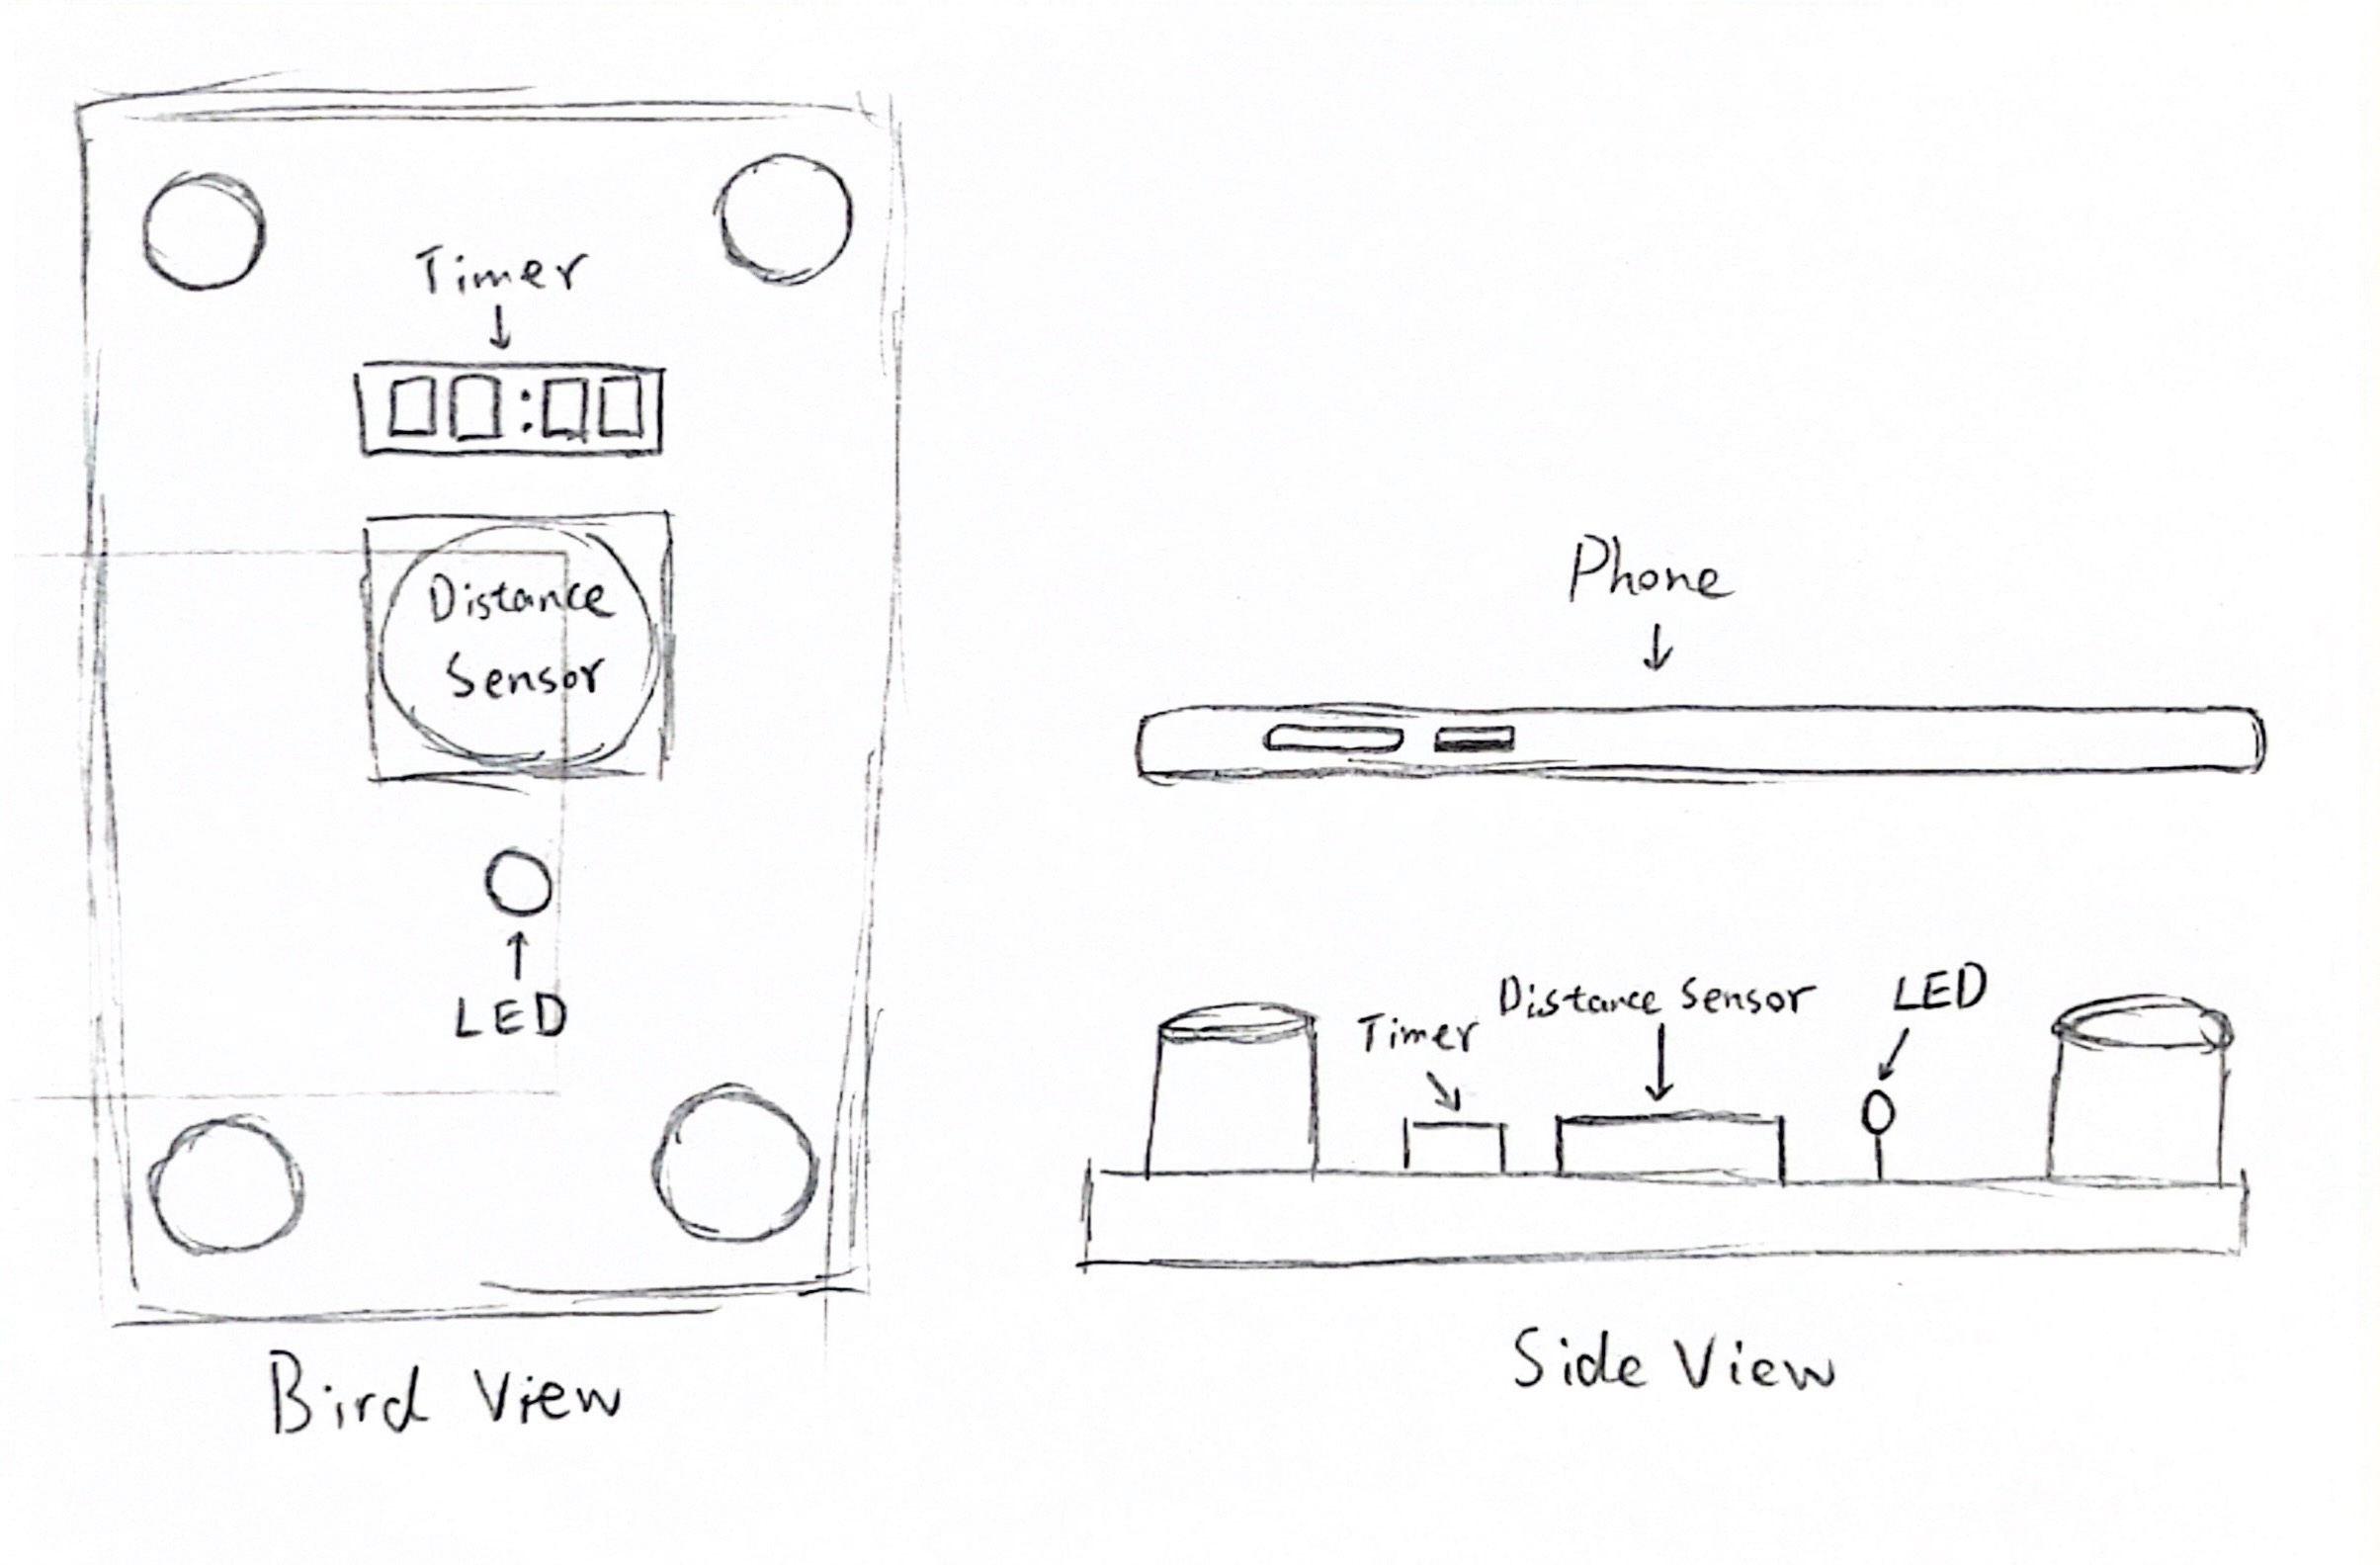 Timer
00:00
Distance
Sensor
LED
Bird View
Phone
Timer
Distance Sensor
LED
Side View